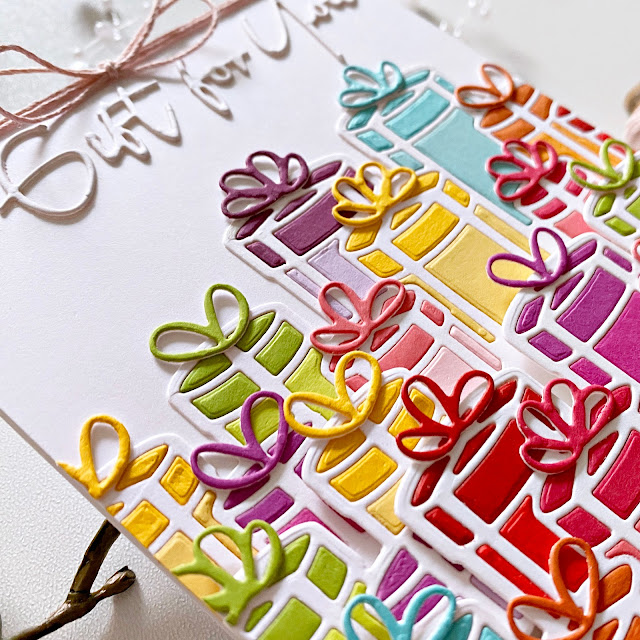 Gift for You